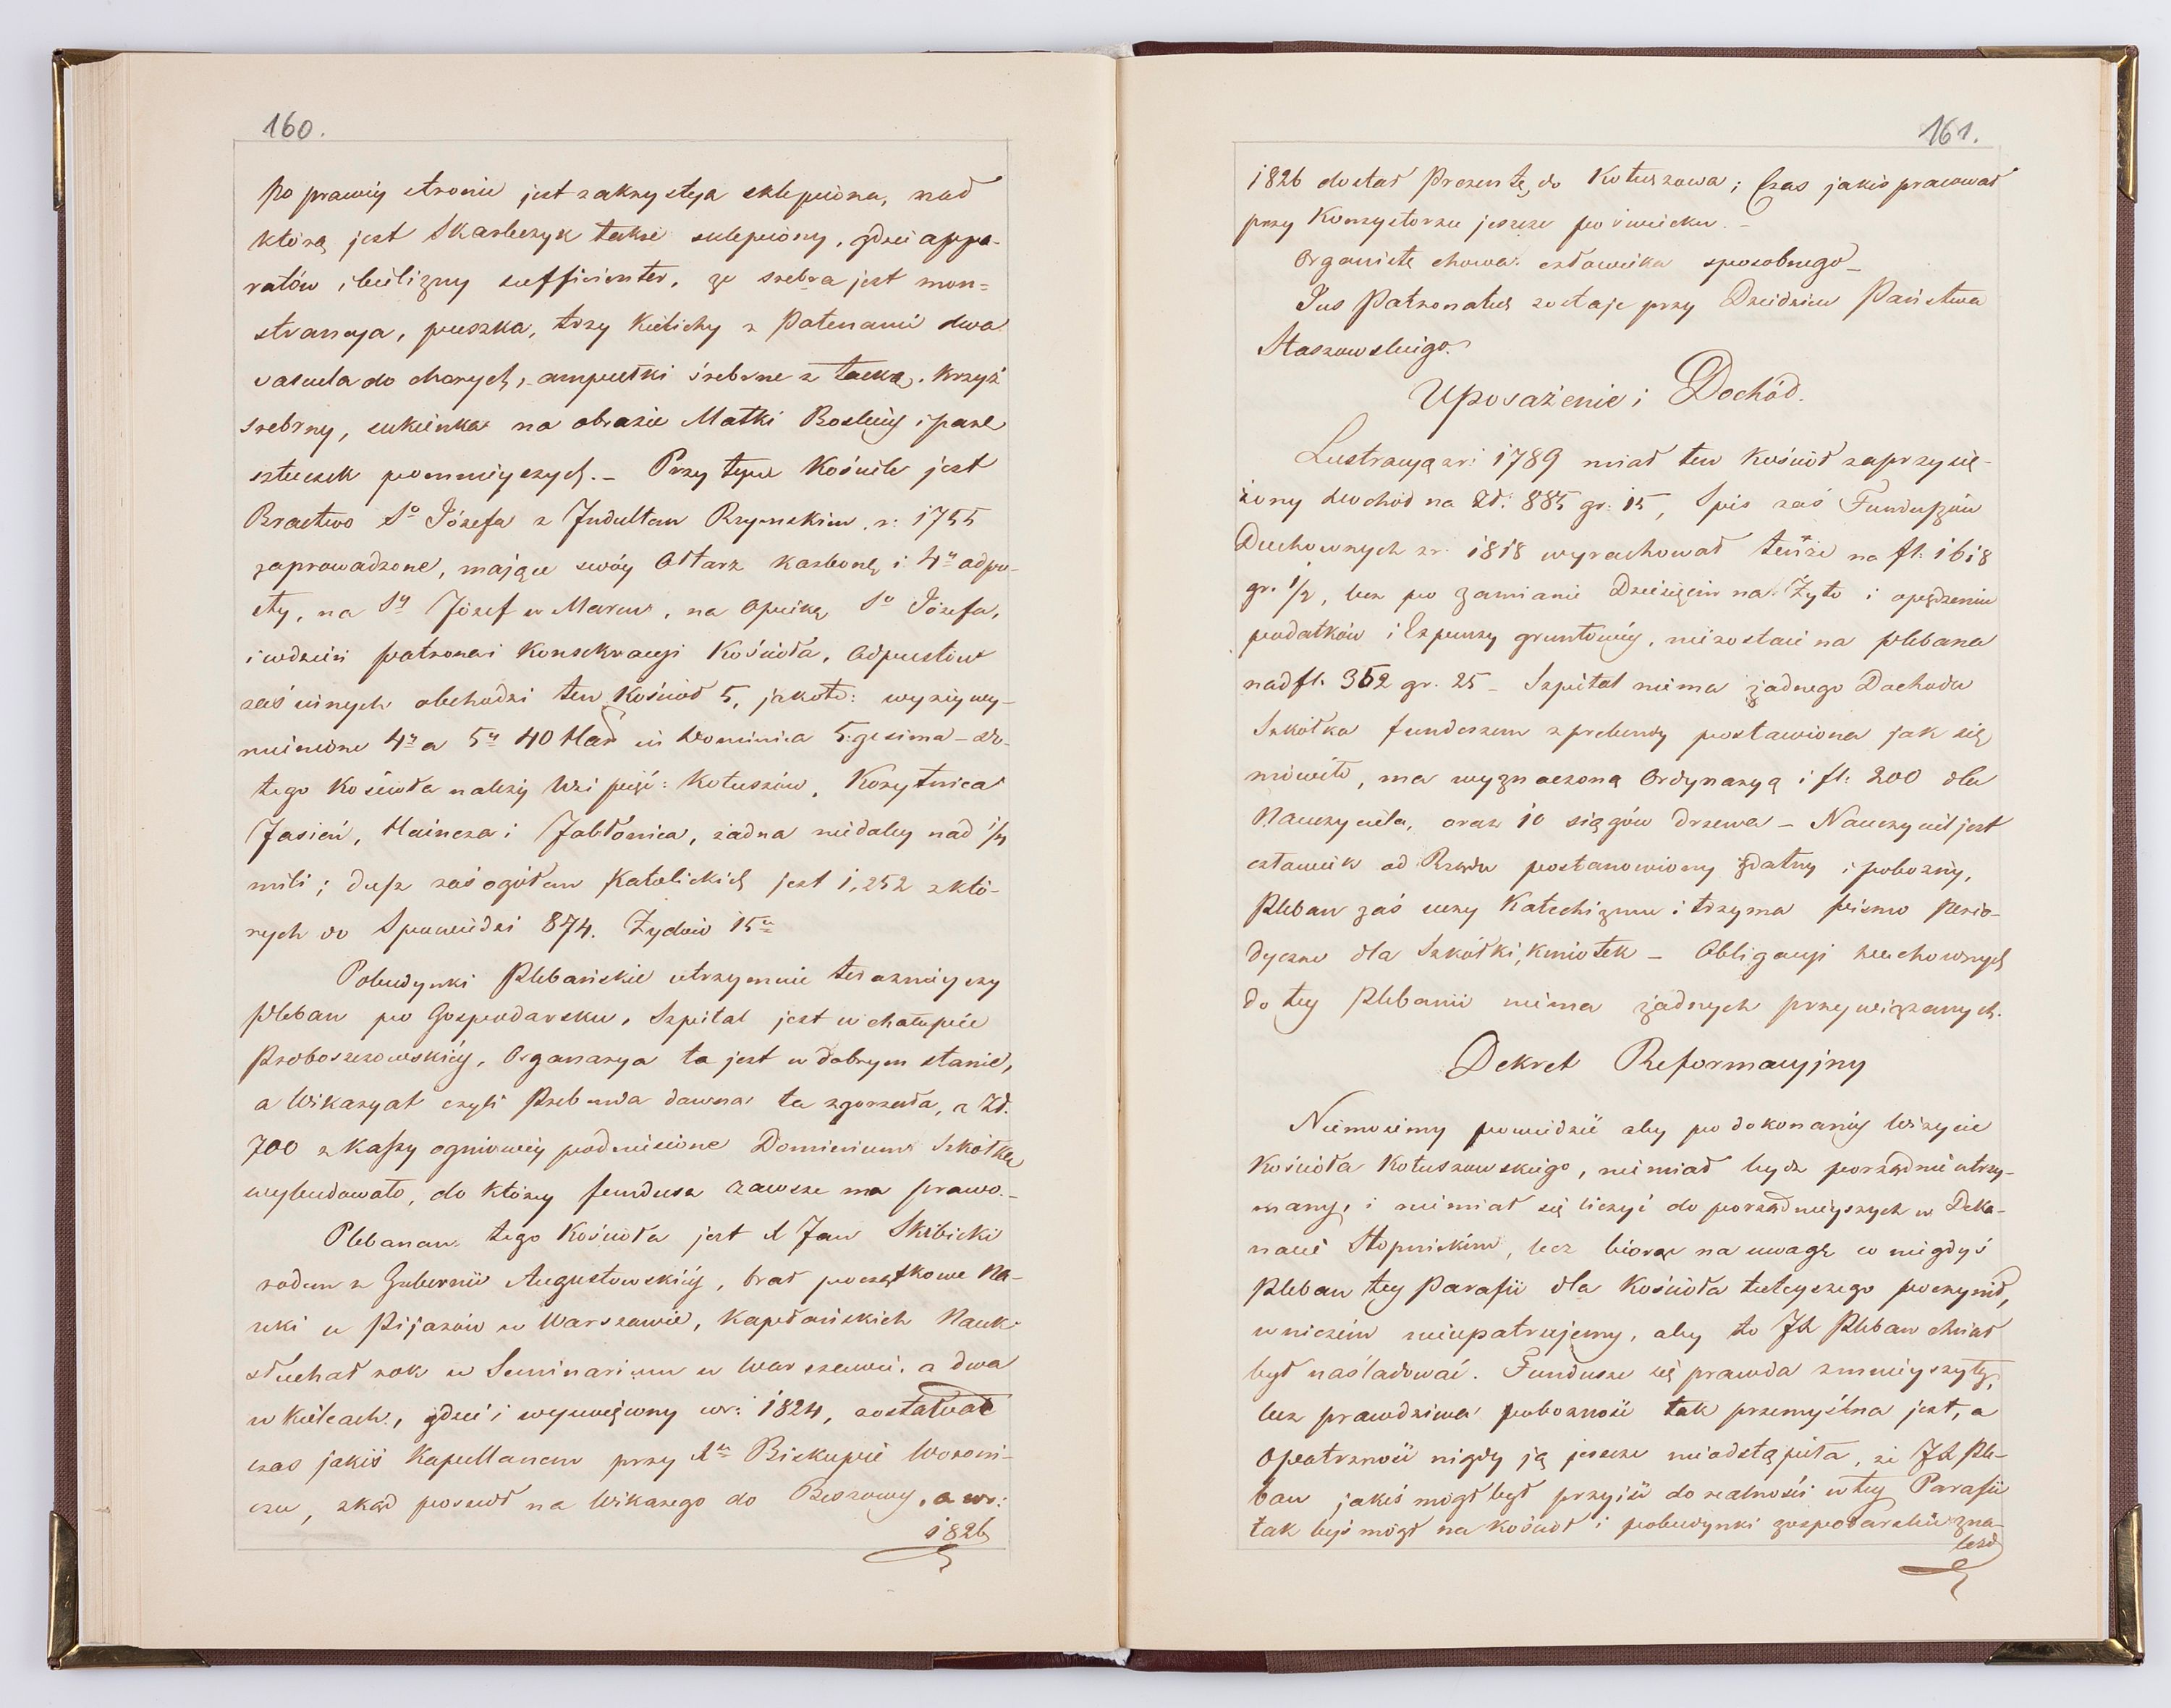 160.
Po prawéy stronie jest zakrystya sklepiona, nad
którą jest Skarbczyk także sklepiony, gdzie appa-
ratów i bielizny sufficienter, ze srebra jest mon-
strancya, puszka, trzy kielichy z Patenami dwa
vascula do chorych, ampułki śrebrne z tacką, krzyż
srebrny, sukienka na obrazie Matki Boskiéy i parę
sztuczek pomniéyszych. – Przy tym Kościele jest
Bractwo So Józefa z Indultem Rzymskim r: 1755
zaprowadzone, mające swóy Ołtarz karbonę i 4ry odpu-
sty, na Sty Józef w Marcu, na Opiekę So Józefa,
i w dzień patrona i Konsekracyi Kościoła, Odpustów
zaś innych obchodzi ten Kościoł 5, jakoto: wyżéy wy-
mienione 4ry a 5ty 40 Had in Dominica 5.gesima – do
tego Kościoła należy Wsi pięć: Kotuszów, Korytnica
Jasień, Maincza i Jabłonica, żadna niedaléy nad 1/2
mili; dusz zaś ogółem Katolickich jest 1,252 z któ-
rych do Spowiedzi 874. Żydów 15tu
Pobudynki Plebańskie utrzymuie teraznieyszy
Pleban po Gospodarsku, Szpital jest w chałupie
Proboszczowskiéy, Organarya ta jest w dobrym stanie,
a Wikaryat czyli Prebenda dawna ta zgorzała, a Zł.
700 z Kassy ogniowéy podniesione Dominium Szkółkę
wybudowało, do któréy fundusz zawsze ma prawo. –
Plebanem tego Kościoła jest X Jan Skibicki
rodem z Gubernii Augustowskiéy, brał początkowe Na-
uki u Pijarów w Warszawie, Kapłańskich Nauk
słuchał rok w Seminarium w Warszawie, a dwa
w Kielcach, gdzie i wyświęcony w r: 1824, zostawał
czas jakiś Kapellanem przy Xu Biskupie Woroni-
czu, zkąd poszedł na Wikarego do Beszowy, a w r:
1826
161.
1826 dostał Prezentę do Kotuszowa; Czas jakiś pracował
przy Konsystorzu jeszcze po świecku. –
Organistę chowa człowieka sposobnego –
Jus Patronatus zostaje przy Dziedzicu Państwa
Staszowskiego.
Uposażenie i Dochód.
Lustracyą z r: 1789 miał ten Kościoł zaprzysię-
żony dochód na Zł: 885 gr: 15, Spis zaś Funduszów
Duchownych z r. 1818 wyrachował tenże na fl. 1618
gr. 1/2, lecz po zamianie Dziesięcin na Żyto i opędzeniu
podatków i Expensy gruntowéy, niezostaie na Plebana
nad fl. 362 gr. 25 – Szpital niema żadnego Dochodu
Szkółka funduszem z prebendy postawiona jak się
mówiło, ma wyznaczoną Ordynaryą i fl: 200 dla
Nauczyciela, oraz 10 siągów drzewa – Nauczyciel jest
człowiek od Rządu postanowiony zdatny i pobożny,
Pleban zaś uczy Katechizmu i trzyma pismo Perio-
dyczne dla Szkółki, Kmiotek – Obligacyi duchownych
do téy Plebanii niema żadnych przywiązanych.
Dekret Reformacyjny
Niemożemy powiedzić aby po dokonanéy Wizycie
Kościoła Kotuszowskiego, niemiał bydź porządnie utrzy-
many, i niemiał się liczyć do porządnieyszych w Deka-
nacie Stopnickim, lecz biorąc na uwagę co niegdyś
Pleban téy Parafii dla Kościoła tuteyszego poczynił,
w niczem nieupatrujemy, aby to JX Pleban chciał
był naśladować. Fundusze się prawda zmnieyszyły,
lecz prawdziwa pobożność tak przemyślna jest, a
Opatrzność nigdy ją jeszcze nieodstąpiła, że JX Ple-
ban jakiś mógł był przyiść do realności w téy Parafii
tak byś mógł na Kościoł i pobudynki gospodarskie zna-
lezd